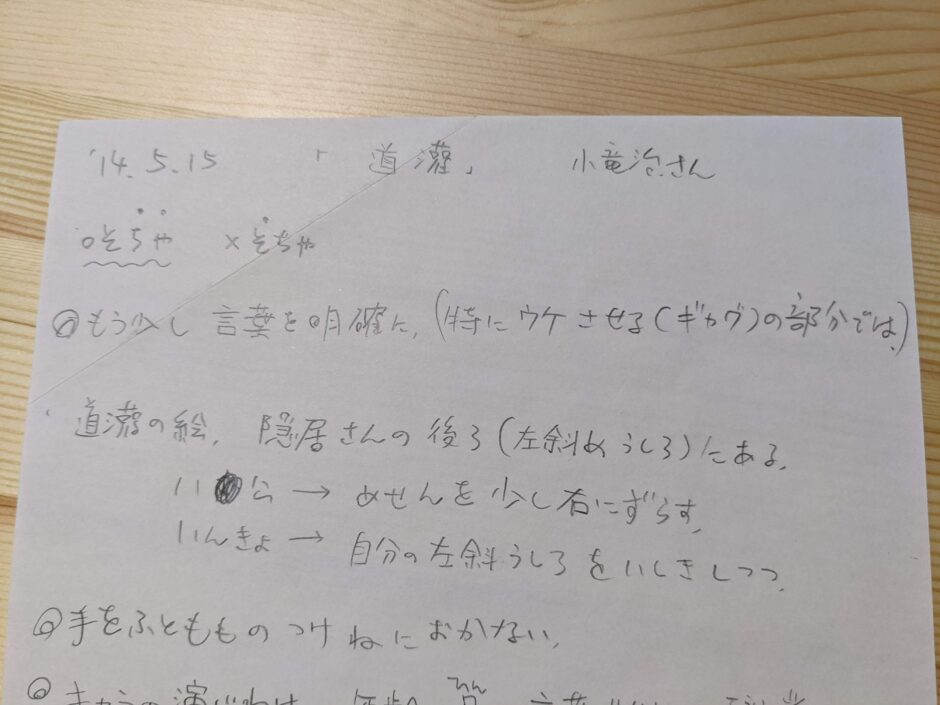 '14.5.15 「道灌」 小竜治さん
○そちゃ ×そちゃ
◎もう少し言葉を明確に、(特にウケさせる(ギャグ)の部分では、)
・道灌の絵、隠居さんの後ろ(左斜めうしろ)にある。
八公→めせんを少し右にずらす。
いんきょ→自分の左斜うしろをいしきしつつ。
◎手をふともものつけねにおかない。
◎キャラの演じわけは、年齢、